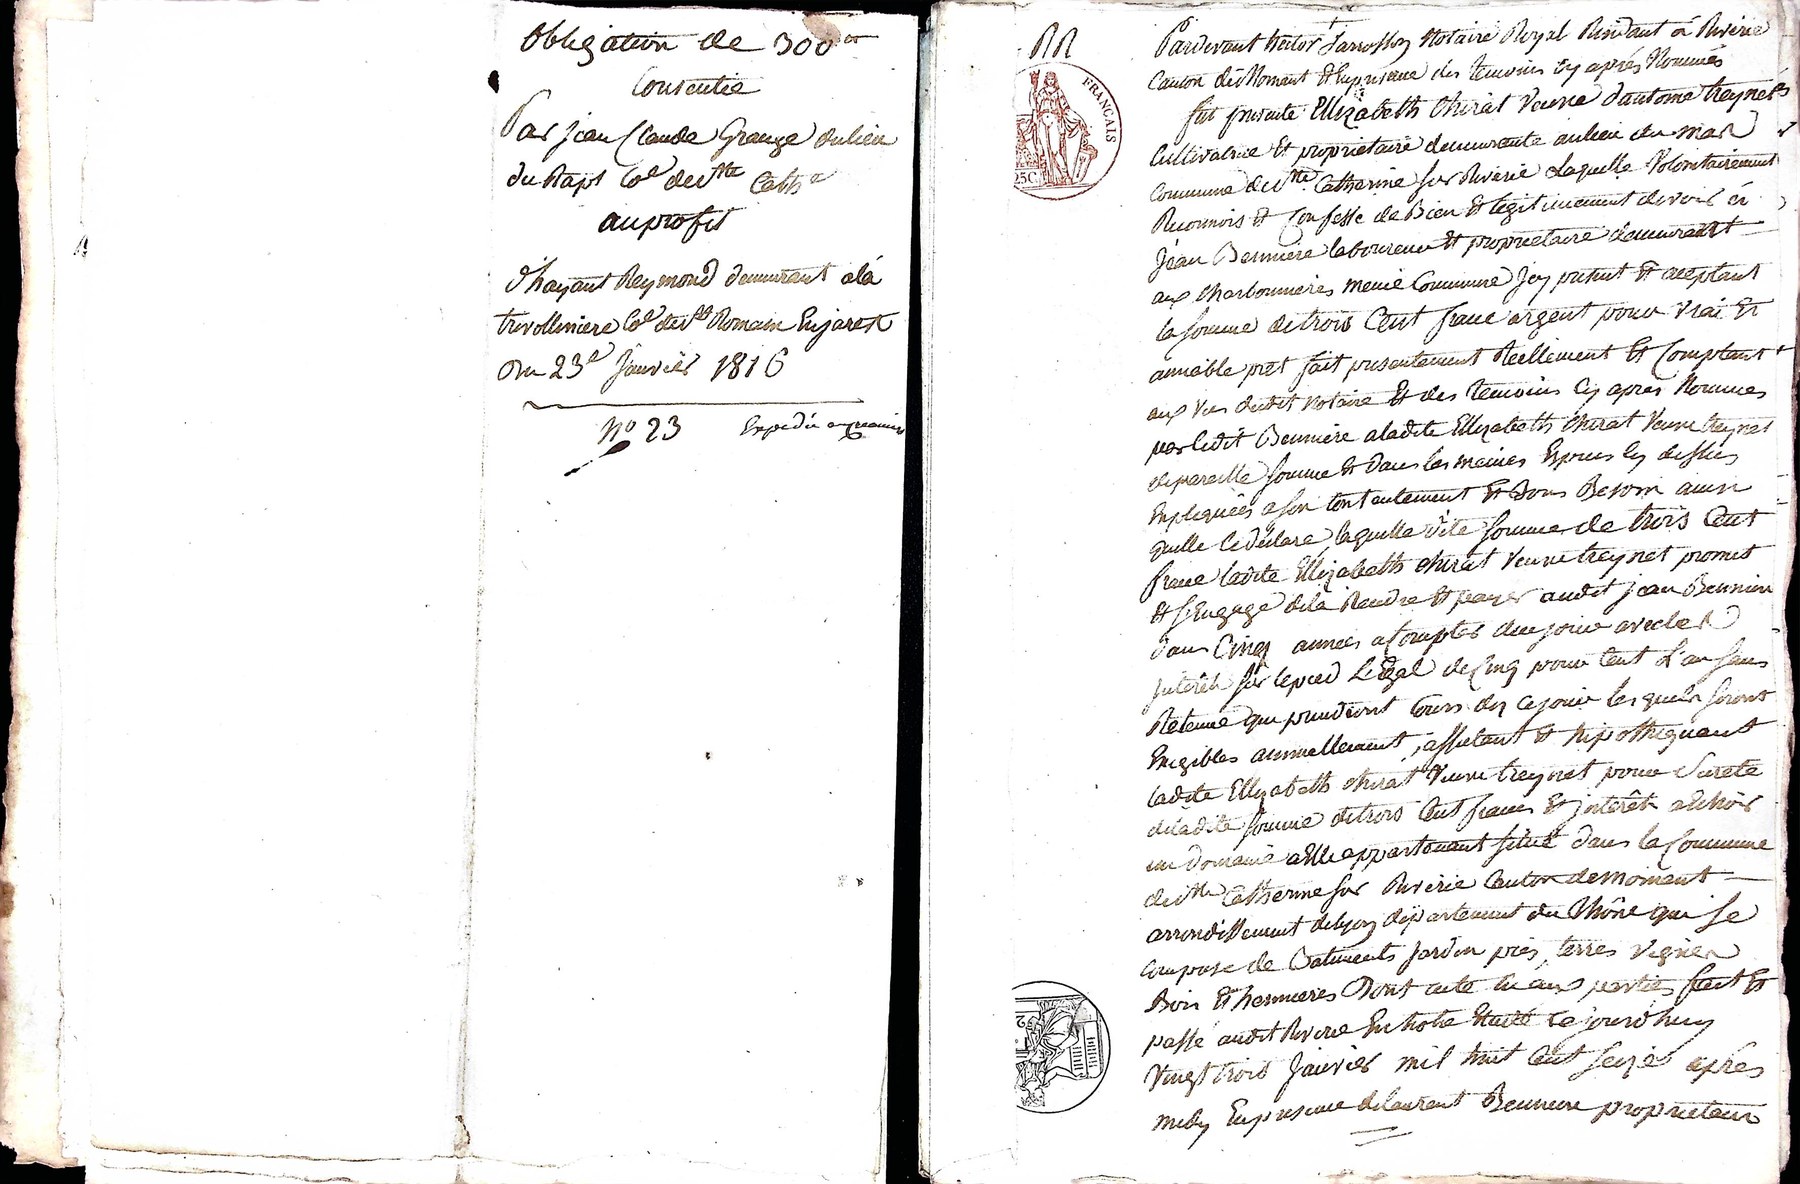 Obligation de 300 
Consentie
Par jean Claude Grange dulieu
du Rapt Cne de Ste Cathne
au profit
d'hayant Reymond demeurant à la
trevolliniere Cne de St Romain Enjarest
Du 23e Janvier 1816
No 23 Expedié
RR
FRANÇAIS
25C
Pardevant hector Notaire Royal Residant à Riverie
Canton de Mornant Et En presence des temoins Cy après Nommés
fut presente Ellizabeth Chirat Veuve d'antoine treynet
Cultivatrice Et propriétaire demeurante au lieu du mas
Commune de Ste Catherine sur Riverie Laquelle Volontairement
Reconnois Et Confesse de Bien Et legitimement devoir à
Jean Bennière laboureur Et proprietaire demeurant
aux Charbonnieres meme Commune Icy present Et aceptant
la somme de trois Cent franc argent pour Vrai Et
amiable prèt fait presentement Réellement Et Comptant
aux Vus dudit Notaire Et des temoins Cy après Nommes
par ledit Bennière a ladite Ellizabeth Chirat Veuve treynet
de pareille somme Et dans les memes Especes Cy dessus
Expliquées a son Contentement Et Bons Besoin ainsi
quelle le déclare laquelle dite somme de trois Cent
franc ladite Ellizabeth Chirat Veuve treynet promet
Et s'Engage de la Rendre Et payer audit jean Bennière
dans Cinq années a Compter de ce jour avec les
Interêts sur le pied Légal de Cinq pour Cent L'an sans
Retenue qui prendront Cours dez ce jour les quels seront
Exigibles annuellement, affectant Et hipothequant
ladite Ellizabeth Chirat Veuve treynet pour Sureté
de ladite somme de trois Cent francs Et interêts a Echoir
un Domaine a Elle appartenant situé dans la Commune
de Ste Catherine sur Riverie Canton de Mornant
arrondissement de Lyon departement du Rhône qui se
compose de Batiments Jardin près, terres Vignes
Bois Et hermieres Dont acte lu aux parties fait Et
passé audit Riverie En notre Etude Ce jourd'huy
Vingt trois Janvier mil huit Cent seize après
midy En presence de laurent Benniere proprietaire